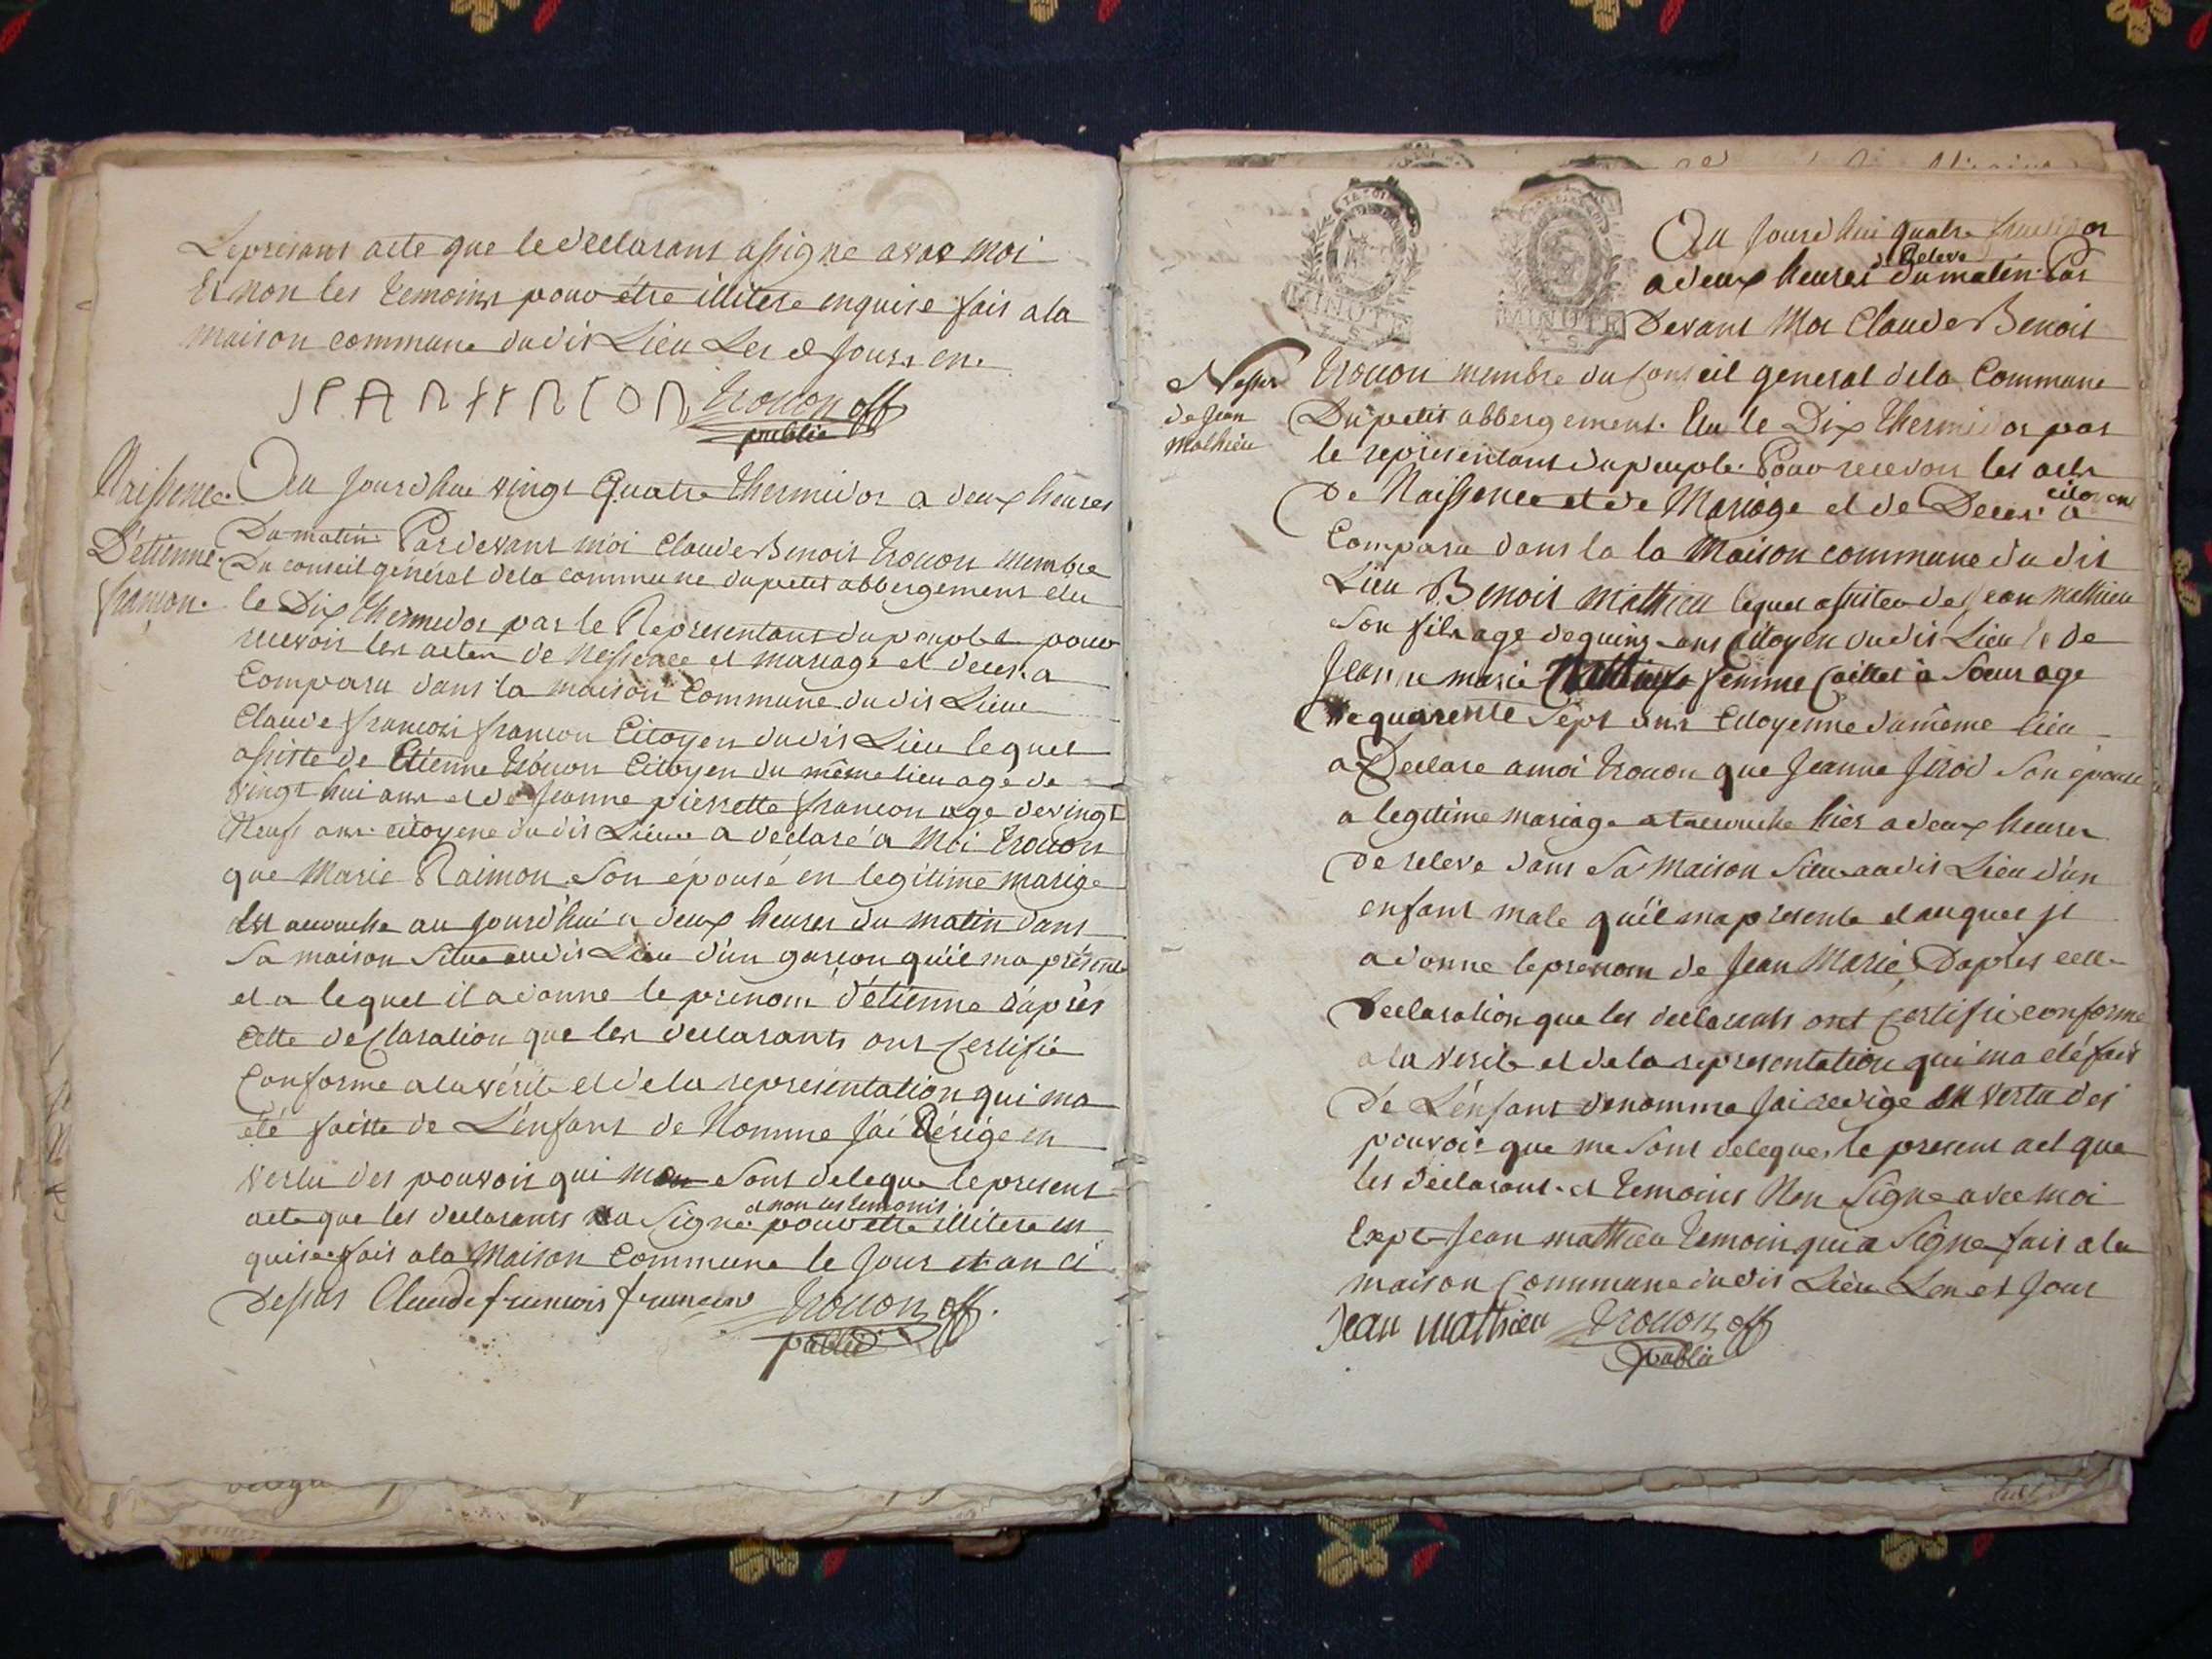 Le présant acte que le declarant a signe avec moi
Et non les temoins pour être illitere enquise fait a la
maison commune dudit Lieu Les & jours en.
Trouon off
public
Naissence
D'etienne
francon.
Au jourdhui vingt Quatre thermidor a deux heures
Du matin Pardevant moi Claude Benoit trouon membre
Du conseil genéral dela commune du petit abbergement elu
le Dix thermidor par le Representant du peuple pour
recevoir les actes de Nessence et mariage et deces. a
Comparu dans la maison Commune dudit Lieu
Claude francois francon Citoyen dudit Lieu lequel
assiste de Etienne trouon Citoyen du même lieu age de
vingt hui ans et de Jeanne pierrette francon age de vingt
Neuf ans citoyene dudit Lieu a declaré a Moi trouon
que Marie Raimon Son épouse en legitime marige
est accouche au jourd'hui a deux heures du matin dans
Sa maison Situe audit Lieu d'un garcon qu'il ma présente
et a lequel il a donne le prenom d'étienne d'après
Cette declaration que les declarants ont certifié
Conforme a la vérite et de la representation qui ma
été faitte de L'enfant de Nomme j'ai Rédige en
vertu des pouvoir qui me Sont delegue le present
et non les temonis
acte que les declarants a Signe pour etre illitere en
quise fait a la Maison Commune le jour et an ci
Dessus Claude francois francon Trouon off.
public
MINUTE
MINUTE
Au jourd'hui quatre fructidor
Releve
a deux heures du matin Par
Devant Moi Claude Benoit
de Jean
Mathieu
trouon membre du Conseil general dela Commune
Du petit abbergement. Elu le Dix thermidor par
le représentant du peuple Pour recevoir les acts
citoyen
De Naissence et de Mariage et de Deces a
Comparu dans la la Maison commune du dit
Lieu Benoit mathieu lequel assiteu de Jean mathieu
Son fils age de quinz ans citoyen dudit Lieu de
Jeanne marie femme Caillet à Soeur age
De quarente Sept ans Citoyenne du même lieu
a Declare a moi trouon que Jeanne Son epouse
a legitime mariage accouche hier a deux heures
de releve dans Sa maison Situe audit Lieu d'un
enfant male qu'il ma presente et auquel il
a donne le prenom de Jean Marie, D'apres cette
Declaration que les declarants ont Certifié conforme
a la verite et dela representation qui ma eté fait
De L'enfant denomme jai redige en vertu des
pouvoir que me Sont delegue, le present act que
les declarant et temoins Non Signe avec moi
Jean mathieu temoin qui a Signe fait a la
maison Commune dudit Lieu L'en et jour
Jean mathieu Trouon off
public